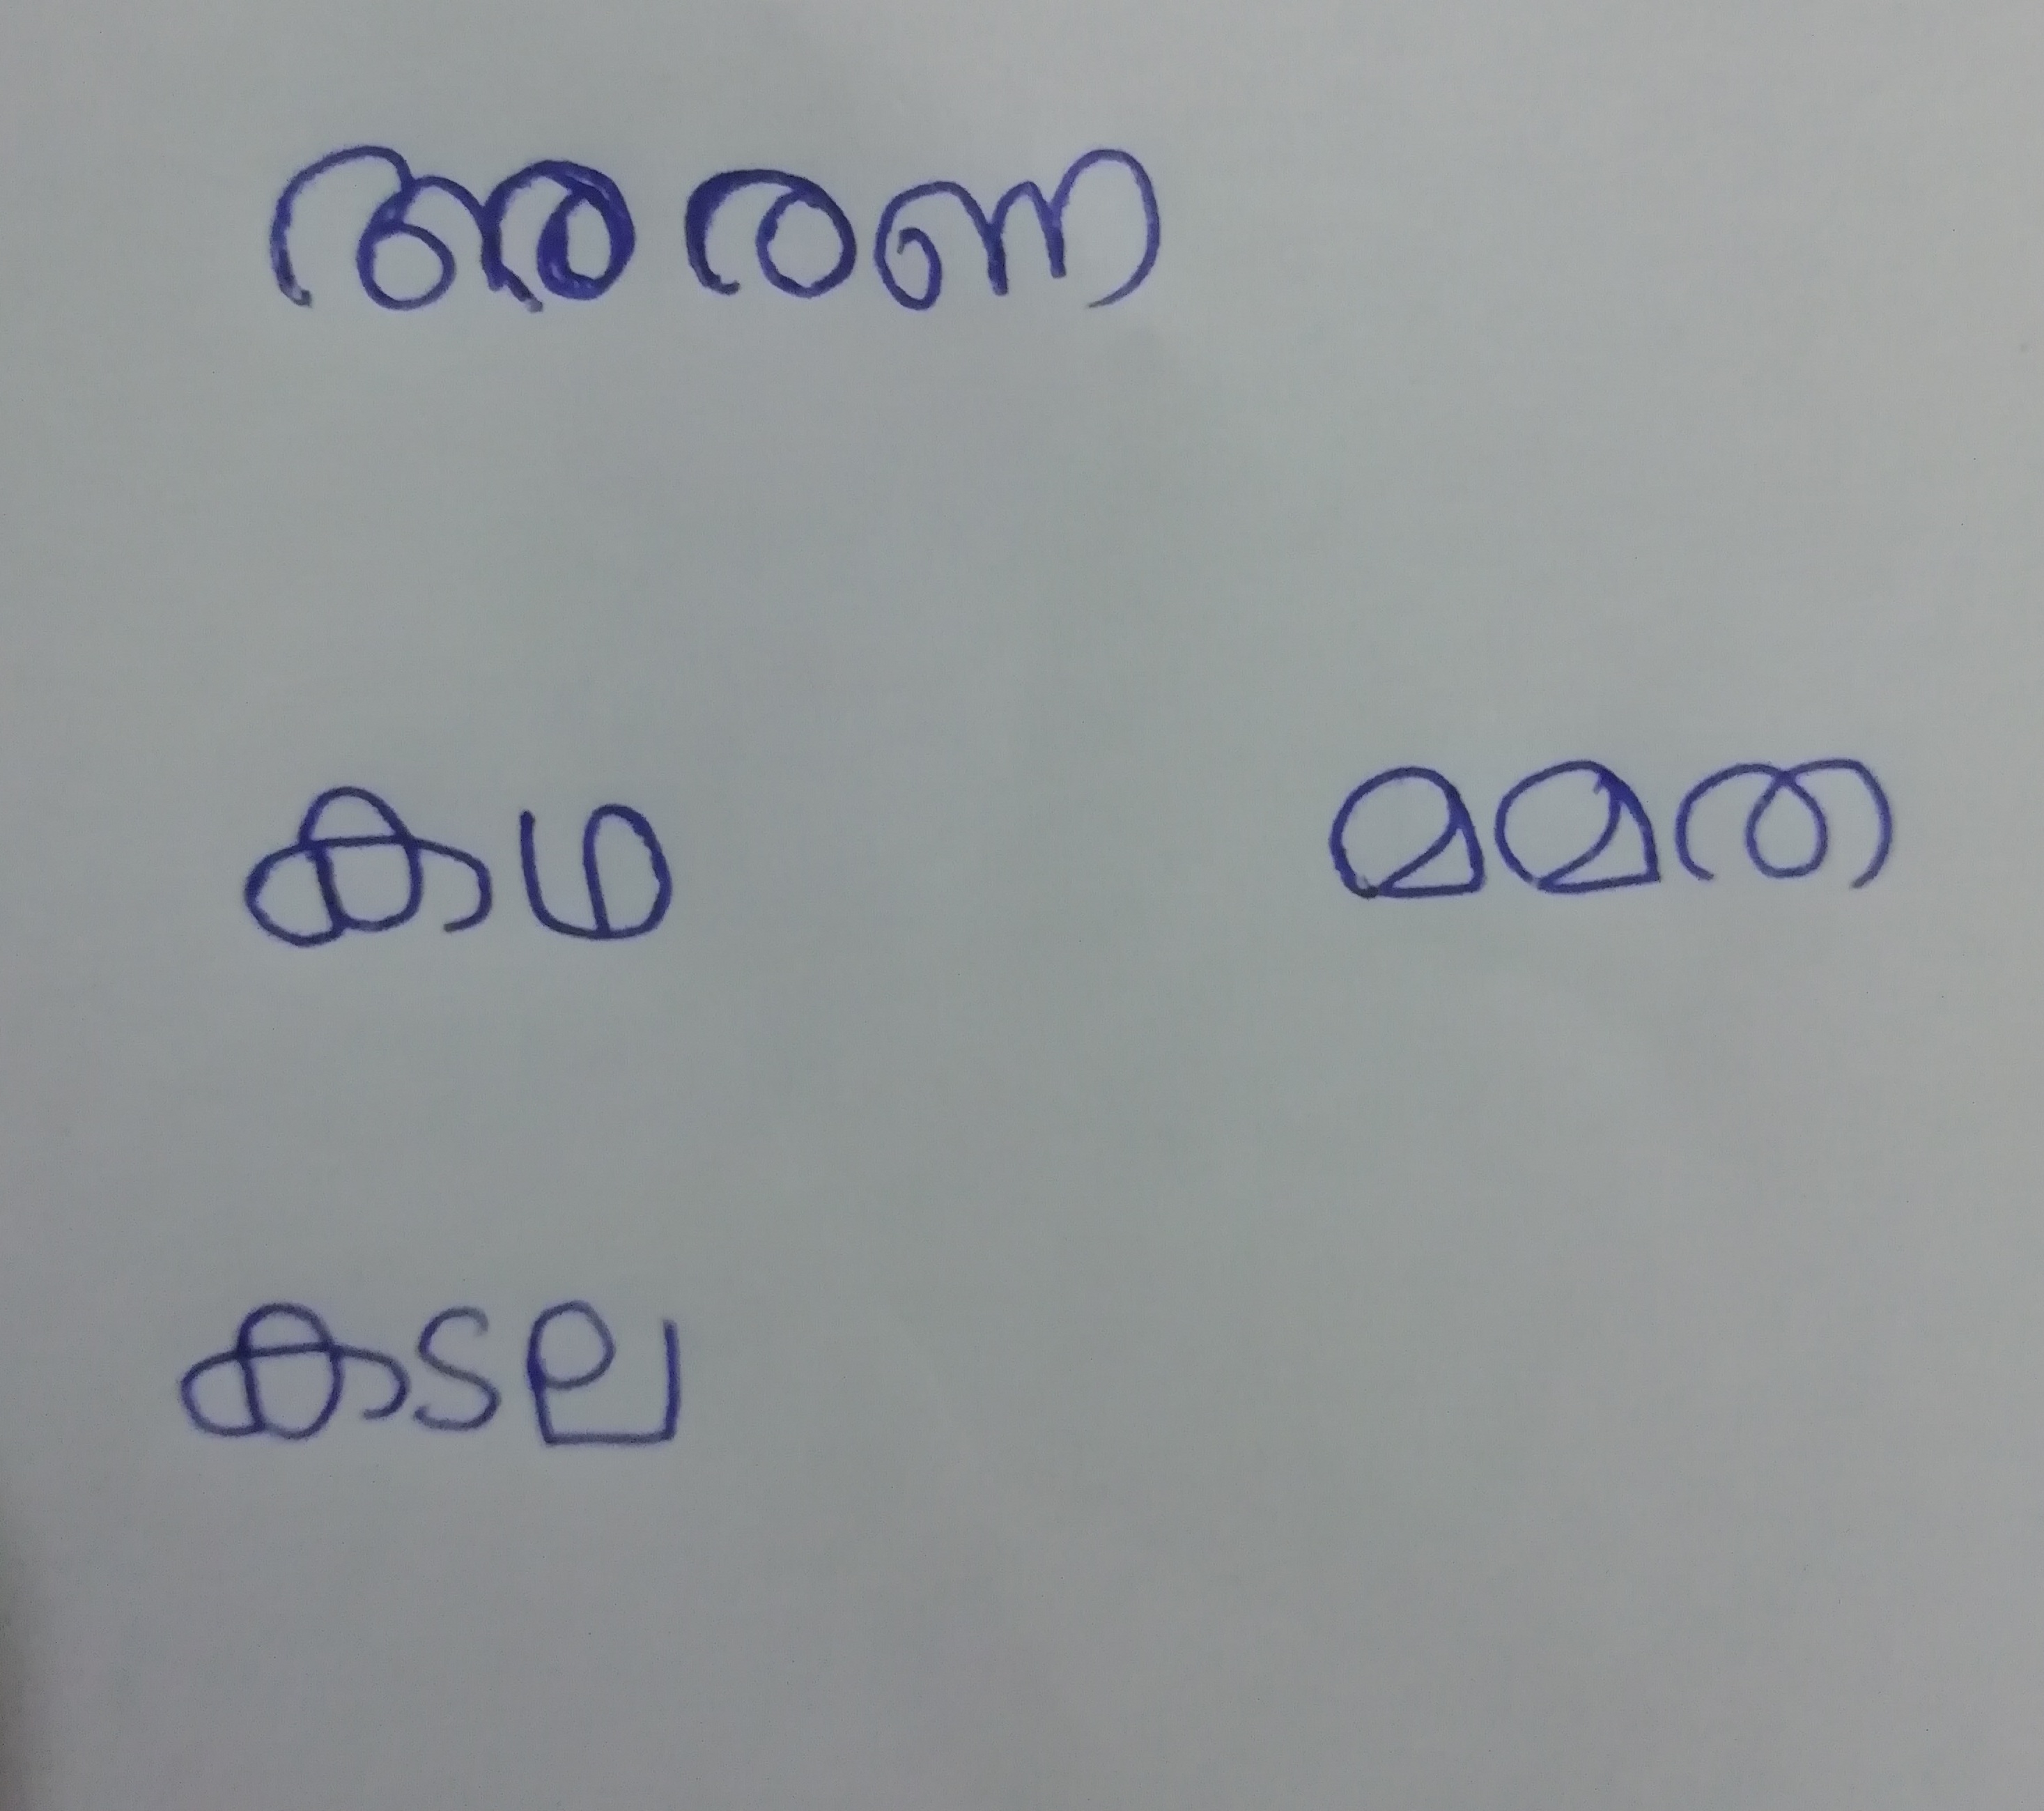 അരണ
കഥ മമത
കടല